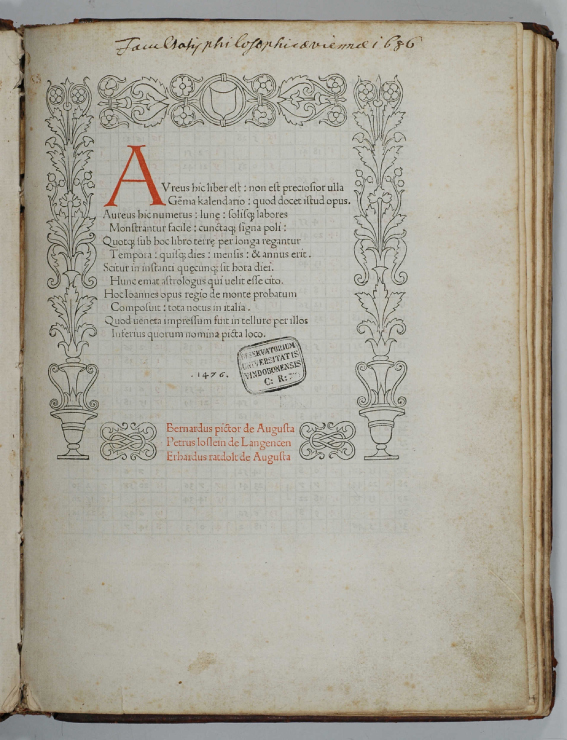 Facultatis philosophicæ viennæ 1686
AVreus hic liber est : non est preciosior ulla
Gẽma kalendario : quod docet istud opus.
Aureus hic numerus : lune : solisq; labores
Monstrantur facile : cunctaq; signa poli :
Quotq; sub hoc libro terre per longa regantur
Tempora : quisq; dies : mensis : & annus erit.
Scitur in instanti quecunq; sit hora diei.
Hunc emat astrologus qui uelit esse cito.
Hoc Ioannes opus regio de monte probatum
Composuit : tota notus in italia.
Quod ueneta impressum fuit in tellure per illos
Inferius quorum nomina picta loco.
.1476.
OBSERVATORIUM
UNIVERSITATIS
VINDOBONENSIS
C: R:
Bernardus pictor de Augusta
Petrus loslein de Langencen
Erhardus ratdolt de Augusta